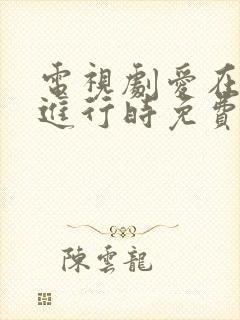 電視劇愛在
進行時免費
陳雲龍